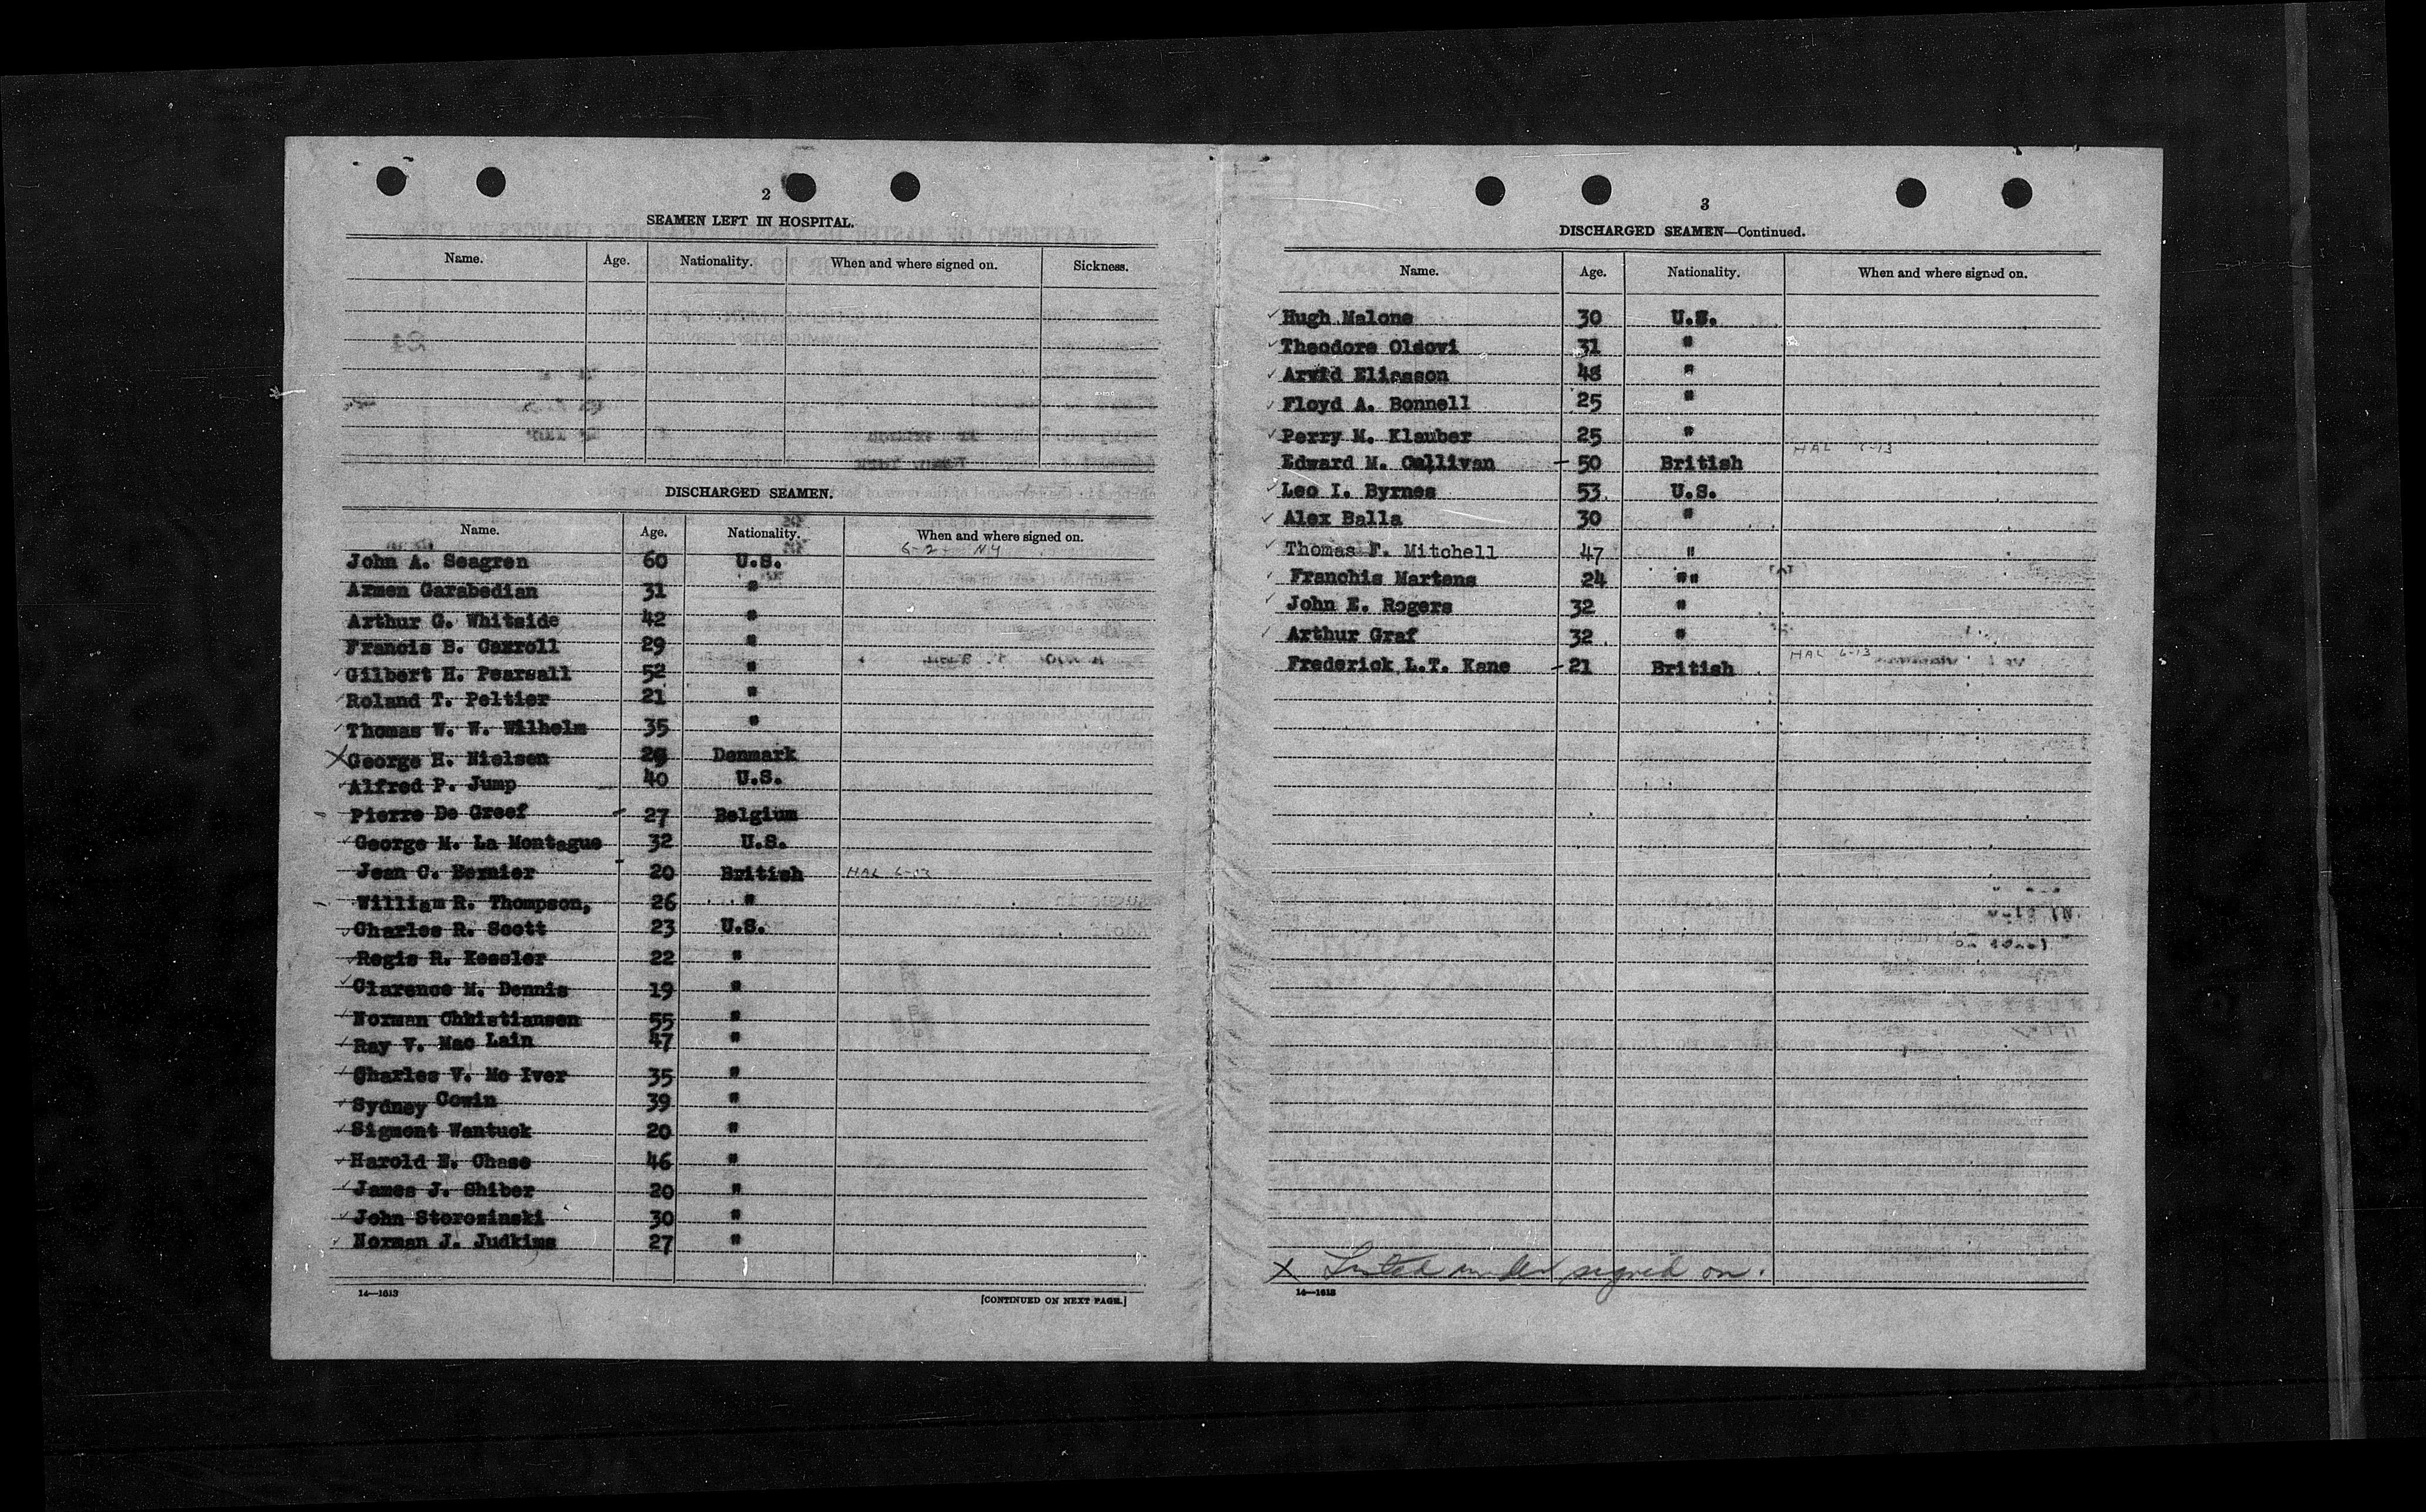 2
SEAMEN LEFT IN HOSPITAL.
Name. Age. Nationality. When and where signed on. Sickness.
DISCHARGED SEAMEN.
Name. Age. Nationality. When and where signed on.
John A. Seagren 60 U.S. 6-2- NY
Armen Garabedian 31 "
Arthur G. Whitside 42 "
Francis B. Carroll 29 "
Gilbert H. Pearsall 52 "
Roland T. Peltier 21 "
Thomas W. W. Wilhelm 35 "
X George H. Nielsen 29 Denmark
Alfred P. Jump 40 U.S.
Pierre De Greef - 27 Belgium
George M. La Montague 32 U.S.
Jean C. Bernier - 20 British HAL 6-13
William R. Thompson, 26 "
Charles R. Scott 23 U.S.
Regis R. Kessler 22 "
Clarence M. Dennis 19 "
Norman Chhistiansen 55 "
Ray V. Mac Lain 47 "
Charles V. Mc Iver 35 "
Sydney Cowin 39 "
Sigmont Wantuck 20 "
Harold E. Chase 46 "
James J. Shiber 20 "
John Storozinski 30 "
Norman J. Judkins 27 "
14—1613 [CONTINUED ON NEXT PAGE.]
3
DISCHARGED SEAMEN—Continued.
Name. Age. Nationality. When and where signed on.
Hugh Malone 30 U.S.
Theodore Olsovi 31 "
Arvid Eliasson 48 "
Floyd A. Bonnell 25 "
Perry M. Klauber 25 "
Edward M. Callivan - 50 British HAL 6-13
Leo I. Byrnes 53 U.S.
Alex Balla 30 "
Thomas F. Mitchell 47 "
Franchis Martens 24 ""
John E. Rogers 32 "
Arthur Graf 32 "
Frederick L.T. Kane - 21 British HAL 6-13
X Listed under signed on.
14—1613